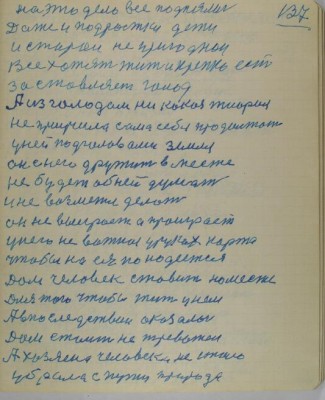 137
на это дело все подняли
Даже и подростки дети
и старой не пригодной
Все хотят жить крепко
заставляет голод
А из голодом ни какая теория
не примирила сама себя продолжат
у ней под головами земля
он с него дружит в месте
не будет об ней думат
и не возмется делат
он не выиграет а проиграет
у него не важная у руках карта
чтобы на ся понадеется
Дом человек ставит на месте
для того чтобы жит у нем
А впоследствии оказалос
Дом стоит не тревожен
А хозяина человека не стало
убрала с пути природа